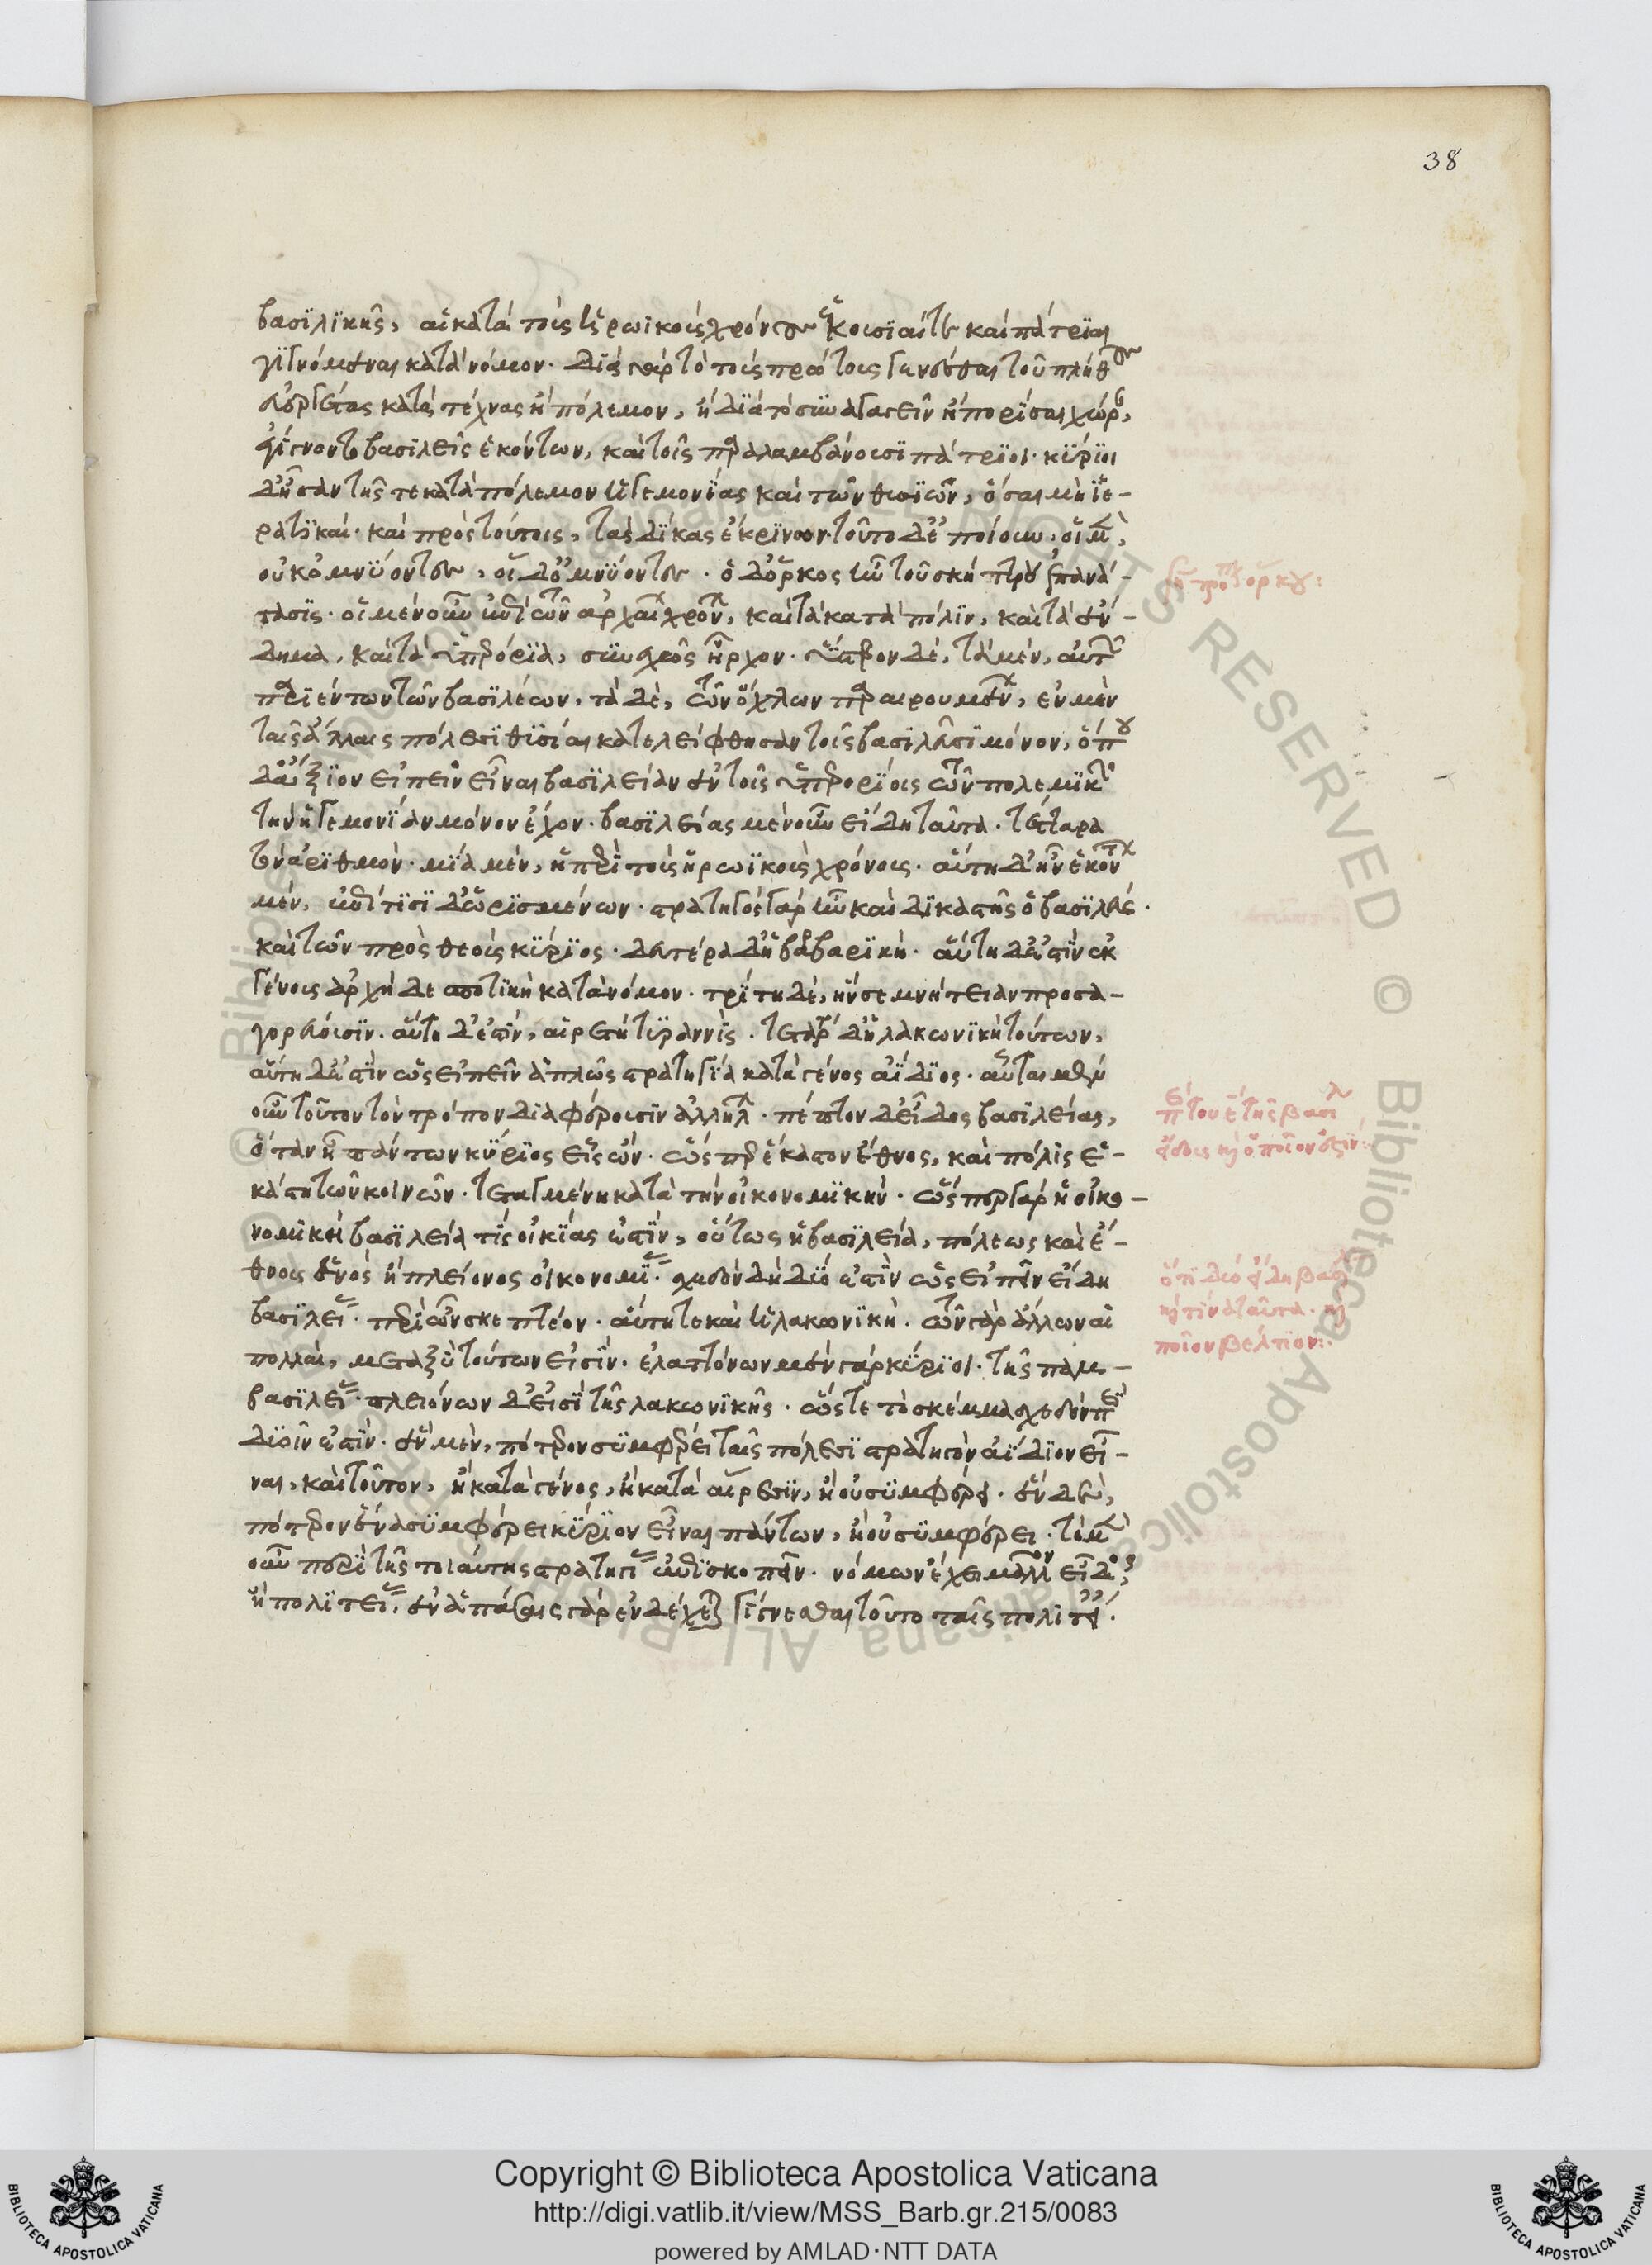 38
βασϊλϊκῆς, αἱ κατὰ τοὺς ἡρωϊκοὺς χρόνους ἑκούσϊαί τε καὶ πάτρϊαι
γϊγνόμεναι κατὰ νόμον. διὰ γὰρ τὸ τοὺς πρώτους γενέσθαι τοῦ πλήθους
εὐεργέτας κατὰ τέχνας ἢ πόλεμον, ἢ δϊὰ τὸ συναγαγεῖν ἢ πορίσαι χώραν,
ἐγίγνοντο βασιλεῖς ἑκόντων, καὶ τοῖς παραλαμβάνουσϊ πάτρϊοι. κύριοι
δ' ἦσαν τῆς τε κατὰ πόλεμον ἡγεμονΐας καὶ τῶν θυσϊῶν, ὅσαι μὴ ἱε-
ρατϊκαί. καὶ πρὸς τούτοις, τὰς δίκας ἔκρϊνον. τοῦτο δὲ ποίουν, οἱ μὲν,
οὐκ ὀμνύοντες, οἱ δ' ὀμνύοντες. ὁ δ' ὅρκος ἦν τοῦ σκήπτρου ἐπανά-
τασϊς. οἱ μὲν οὖν ἐπὶ τῶν ἀρχαίων χρόνων, καὶ τὰ κατὰ πόλϊν, καὶ τὰ ἔν-
δημα, καὶ τὰ ὑπερόρϊα, συνεχῶς ἦρχον. ὕστερον δὲ, τὰ μὲν, αὐτῶν
παρϊέντων τῶν βασϊλέων, τὰ δὲ, τῶν ὄχλων παραιρουμένων, ἐν μὲν
ταῖς ἄλλαις πόλεσϊ θϋσίαι κατελείφθησαν τοῖς βασϊλεῦσϊ μόνον, ὅπου
δ' ἄξϊον εἰπεῖν εἶναι βασϊλείαν ἐν τοῖς ὑπερορΐοις τῶν πολεμϊκῶν
τὴν ἡγεμονΐαν μόνον εἶχον. βασϊλείας μὲν οὖν εἴδη ταῦτα. τέτταρα
τὸν ἀρϊθμόν. μΐα μὲν, ἡ περὶ τοὺς ἡρωϊκοὺς χρόνους. αὕτη δ' ἦν ἑκόντων
μὲν, ἐπί τισϊ δ' ὡρϊσμένων. στρατηγός γὰρ ἦν καὶ δϊκαστὴς ὁ βασϊλεύς.
καὶ τῶν πρὸς θεοὺς κΰρϊος. δευτέρα δ' ἡ βαρβαρϊκή. αὕτη δ' ἐστὶν ἐκ
γένους ἀρχὴ δεσποτϊκὴ κατὰ νόμον. τρίτη δὲ, ἣν αἰσυμνητείαν προσα-
γορεύουσϊν. αὕτη δ' ἐστὶν, αἱρετὴ τϋραννὶς. τετάρτη δ' ἡ λακωνϊκὴ τούτων,
αὕτη δ' ἐστὶν ὡς εἰπεῖν ἁπλῶς στρατηγΐα κατὰ γένος ἀΐδϊος. αὗται μὲν
οὖν τοῦτον τὸν τρόπον δϊαφέρουσϊν ἀλλήλων. πέμπτον δ' εἶδος βασϊλείας,
ὅταν ᾖ πάντων κύριος εἷς ὢν. ὥσπερ ἕκαστον ἔθνος, καὶ πόλϊς ἑ-
κάστη τῶν κοινῶν. τεταγμένη κατὰ τὴν οἰκονομϊκήν. ὥσπερ γὰρ ἡ οἰκο-
νομϊκὴ βασϊλεία τϊς οἰκΐας ἐστὶν, οὕτως ἡ βασϊλεία, πόλεως καὶ ἔ-
θνους ἑνὸς ἢ πλείονος οἰκονομΐα. σχεδὸν δὴ δύο ἐστὶν ὡς εἰπεῖν εἴδη
βασϊλείας. περὶ ὧν σκεπτέον. αὕτη τε καὶ ἡ λακωνϊκή. τῶν γὰρ ἄλλων αἱ
πολλαὶ, μεταξὺ τούτων εἰσΐν. ἐλαττόνων μὲν γὰρ κύρϊοι. τῆς παμ-
βασϊλείας. πλειόνων δ' εἰσϊ τῆς λακωνϊκῆς. ὥστε τὸ σκέμμα σχεδὸν περὶ
δυοῖν ἐστὶν. ἓν μὲν, πότερον συμφέρει ταῖς πόλεσϊ στρατηγὸν ἀΐδϊον εἶ-
ναι, καὶ τοῦτον, ἢ κατὰ γένος, ἢ κατὰ αἵρεσϊν, ἢ οὐ συμφέρει. ἓν δὲ,
πότερον ἕνα συμφέρει κύρϊον εἶναι πάντων, ἢ οὐ συμφέρει. τὸ μὲν
οὖν περὶ τῆς τοιαύτης στρατηγίας ἐπϊσκοπεῖν. νόμων ἔχει μᾶλλον εἶδος
ἢ πολϊτείας. ἐν ἁπάσαις γὰρ ἐνδέχεται γίγνεσθαι τοῦτο ταῖς πολιτείαις.
ὅρκου:
πέμπτον εἶδος τῆς βασιλείας
ὅτϊ δύο εἴδη βασιλείας
καὶ τίνα ταῦτα. καὶ
ποῖον βέλτϊον:
Copyright © Biblioteca Apostolica Vaticana
http://digi.vatlib.it/view/MSS_Barb.gr.215/0083
powered by AMLAD·NTT DATA
BIBLIOTECA APOSTOLICA VATICANA
BIBLIOTECA APOSTOLICA VATICANA